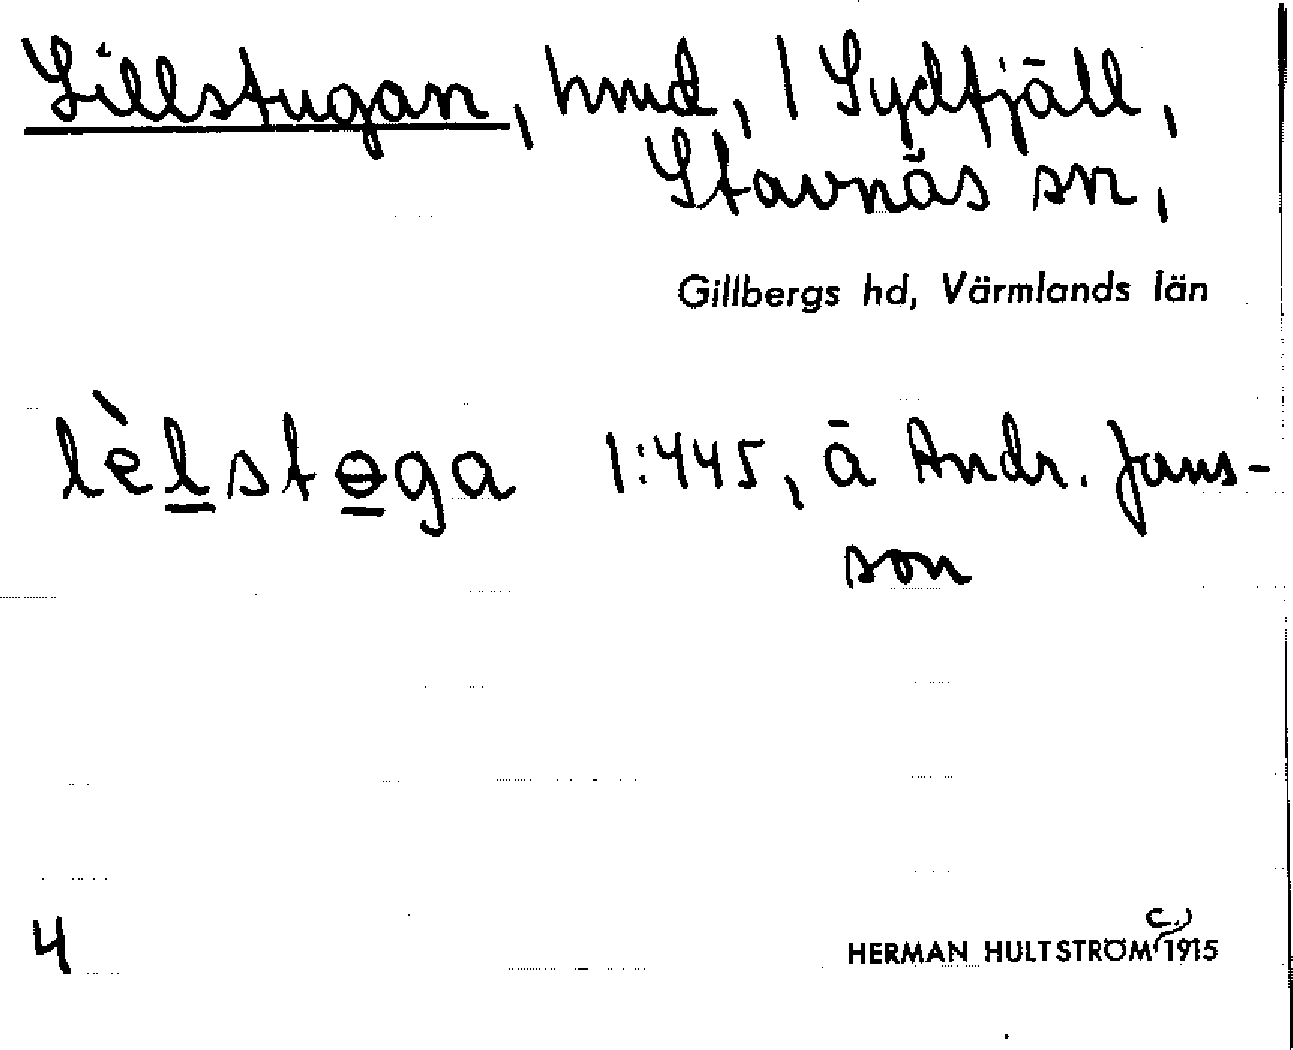 Lillstugan, hmd, / Sydfjäll,
Stavnäs sn,
Gillbergs hd, Värmlands län
lèl̲stɵ̲ga 1:445, ä Andr. Jans-
son
4
HERMAN HULTSTRÖM 1915